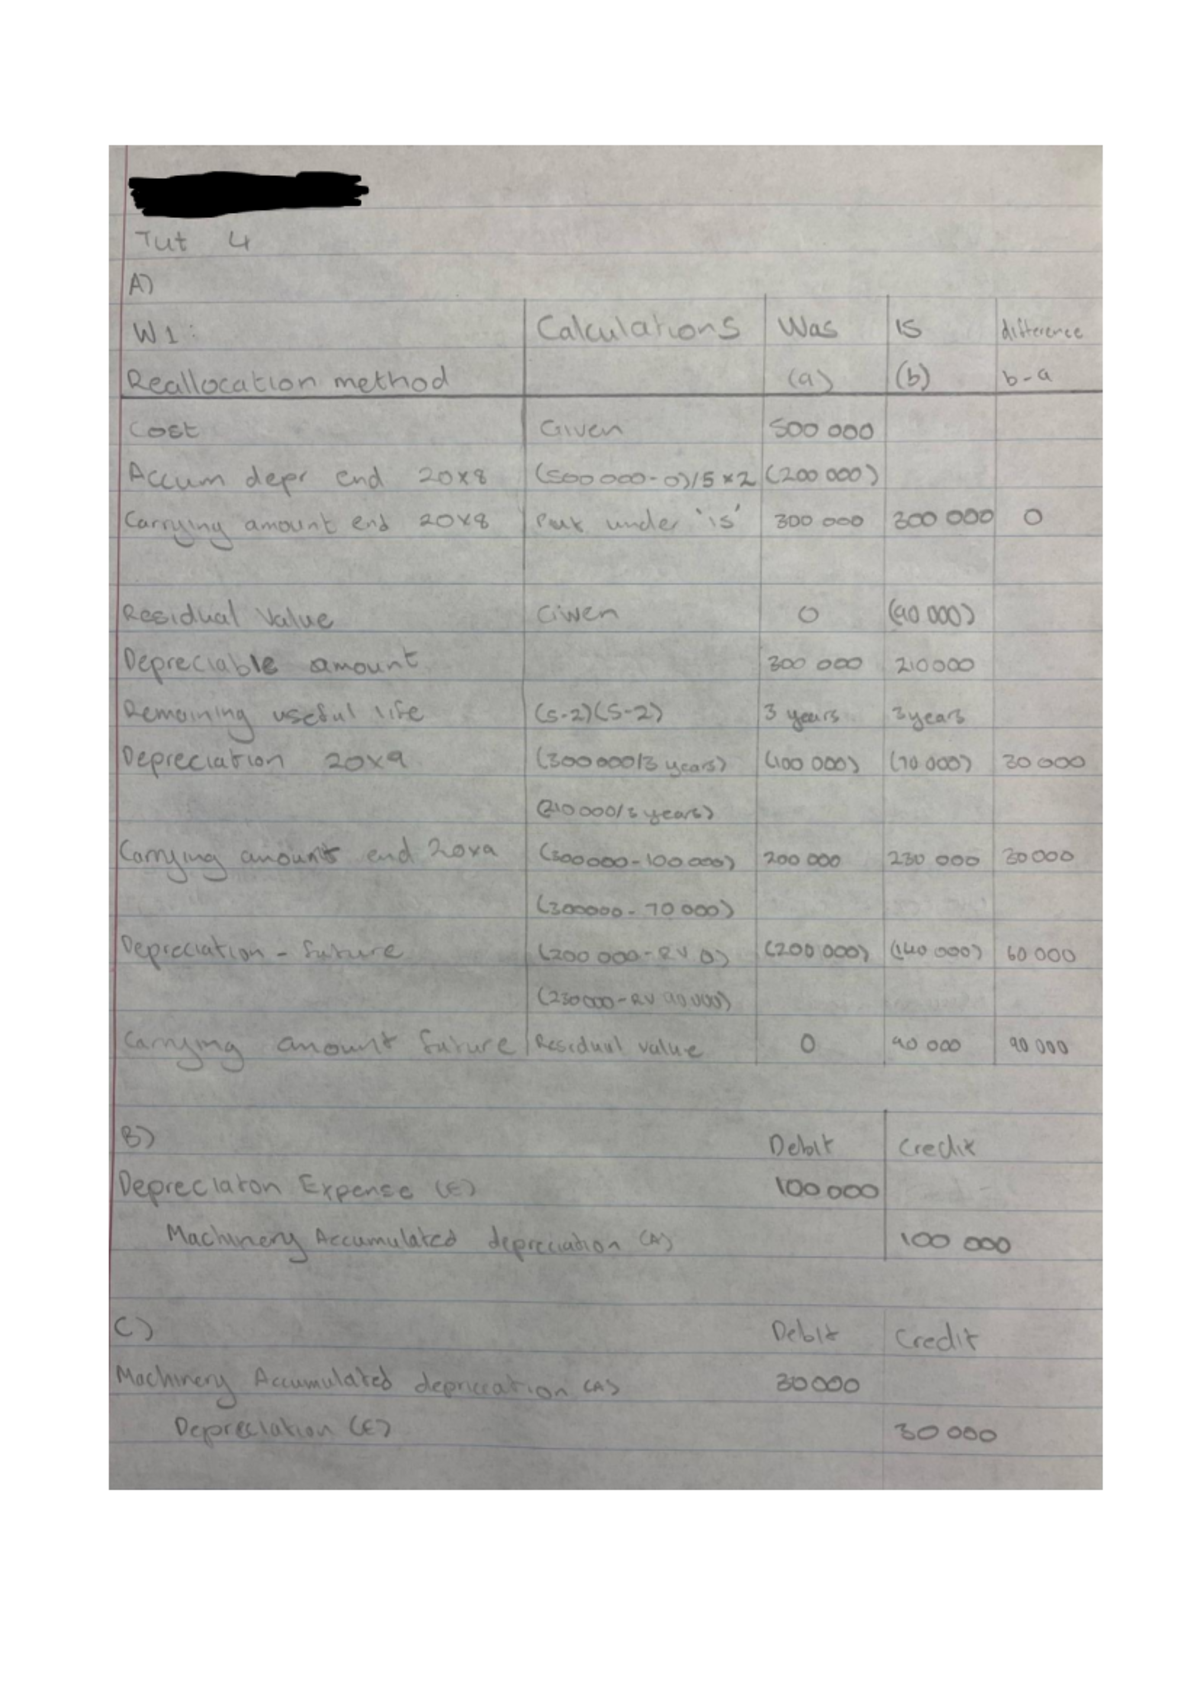 Tut 4
A)
W1: Calculations Was IS difference
Reallocation method (a) (b) b-a
Cost Given 500 000
Accum depr end 20x8 (500 000-0)/5 x2 (200 000)
Carrying amount end 20x8 Put under 'is' 300 000 300 000 0
Residual Value Given 0 (90 000)
Depreciable amount 300 000 210000
Remaining useful life (5-2)(5-2) 3 years 3 years
Depreciation 20x9 (300 000/3 years) (100 000) (70 000) 30 000
(210 000/3 years)
Carrying amount end 20x9 (300000-100 000) 200 000 230 000 30 000
(300000-70 000)
Depreciation - future (200 000-RV 0) (200 000) (140 000) 60 000
(230000-RV 90 000)
Carrying amount future Residual value 0 90 000 90 000
B) Debit Credit
Depreciaton Expense (E) 100 000
Machinery Accumulated depreciation (A) 100 000
C) Debit Credit
Machinery Accumulated depriciation (A) 30 000
Depreciation (E) 30 000